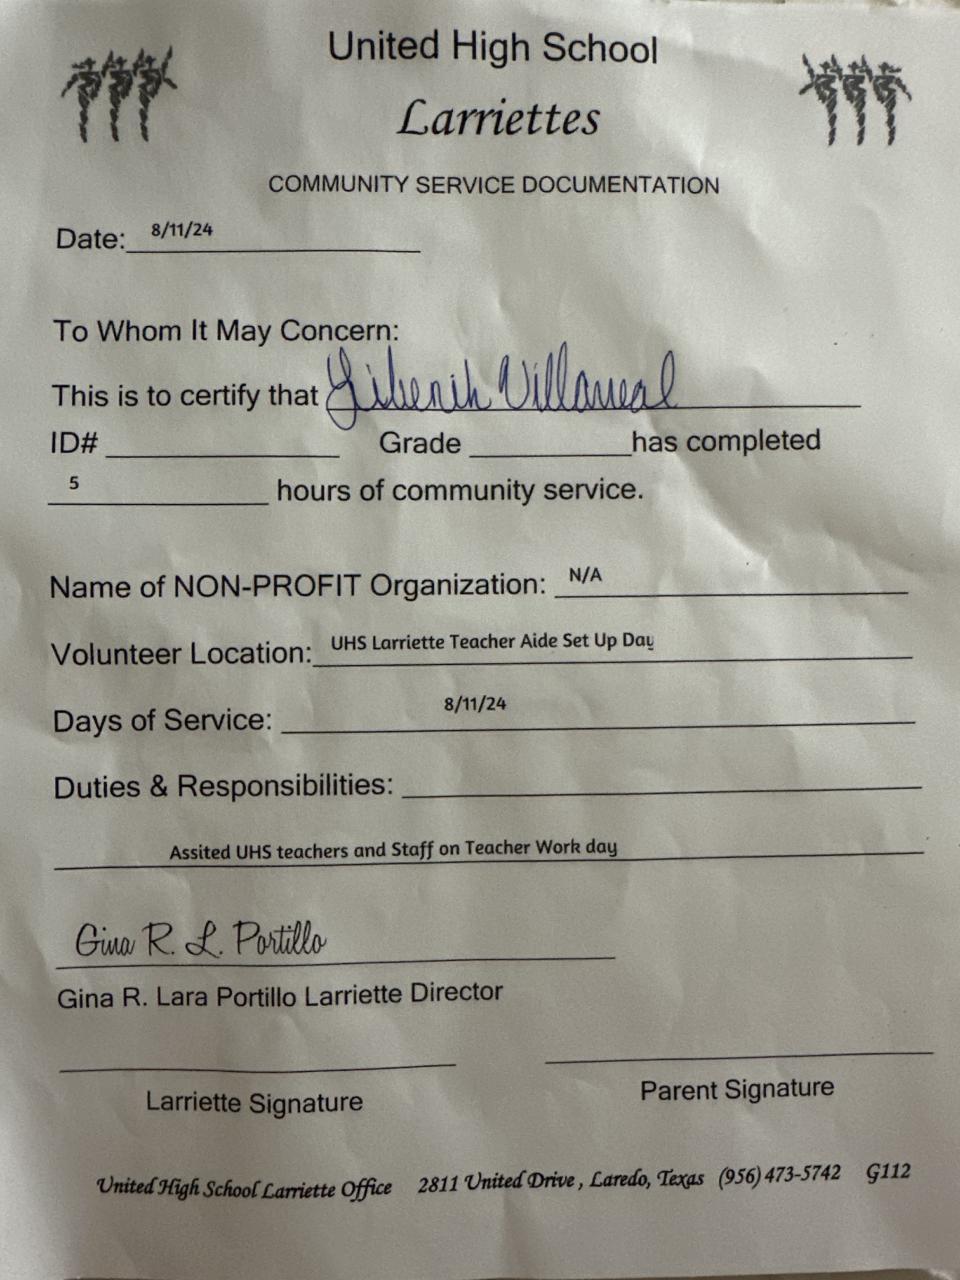 United High School
Larriettes
COMMUNITY SERVICE DOCUMENTATION
Date: 8/11/24
To Whom It May Concern:
This is to certify that Villarreal
ID# Grade has completed
5 hours of community service.
Name of NON-PROFIT Organization: N/A
Volunteer Location: UHS Larriette Teacher Aide Set Up Day
Days of Service: 8/11/24
Duties & Responsibilities:
Assited UHS teachers and Staff on Teacher Work day
Gina R. L. Portillo
Gina R. Lara Portillo Larriette Director
Larriette Signature Parent Signature
United High School Larriette Office 2811 United Drive, Laredo, Texas (956) 473-5742 G112